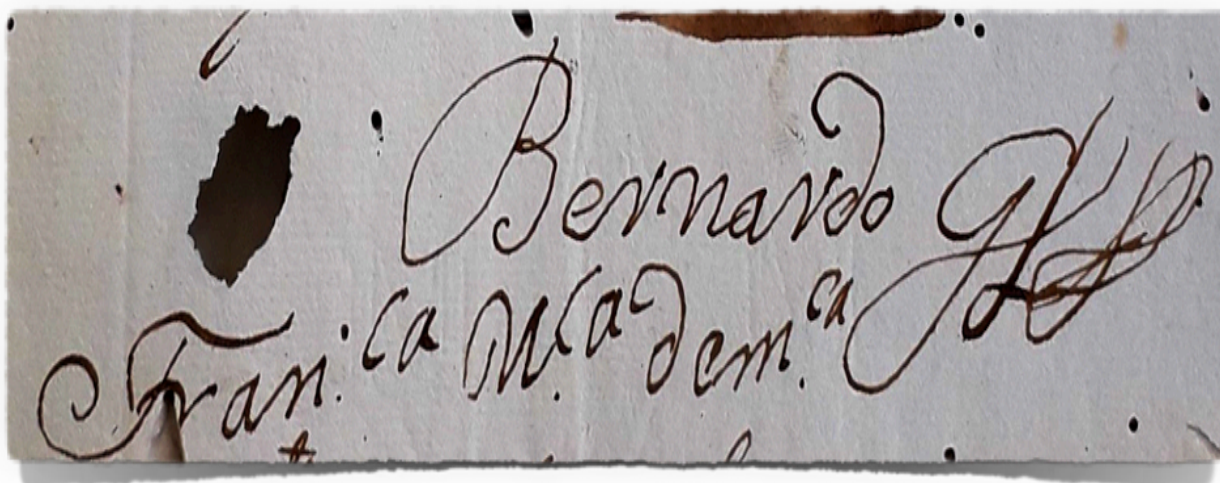 Bernardo
Fran.ca M.ca dem.ca